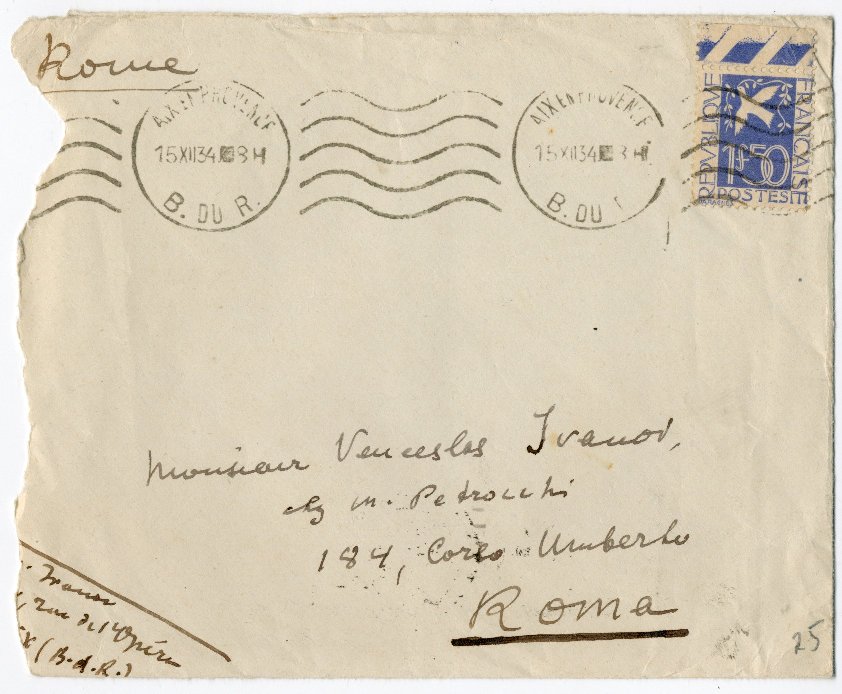 Rome
AIX EN PROVENCE
15 XII 34 8H
B. DU R.
AIX EN PROVENCE
15 XII 34 8H
B. DU
REPVBLIQVE
FRANÇAISE
1F50
POSTES
Monsieur Venceslas Ivanov,
chz M. Petrocchi
184, Corso Umberto
Roma
Ivanov
, rue de l'Opéra
(B.d.R.)
25